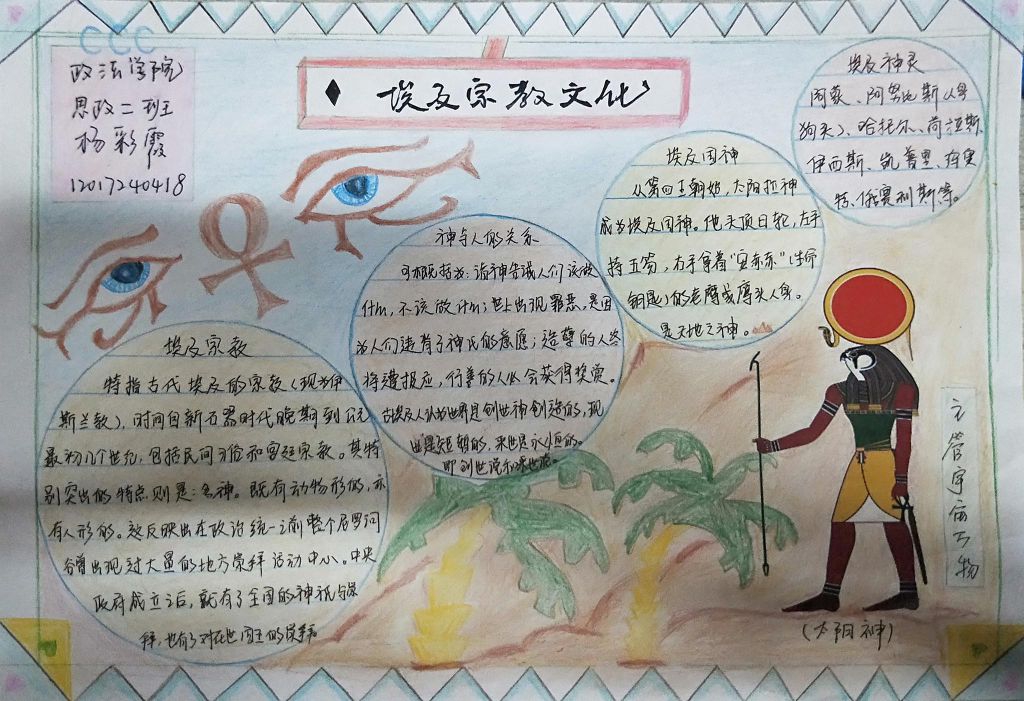 CCC
政法学院
思政二班
杨彩霞
12017240418
埃及宗教文化
埃及神灵
阿蒙、阿努比斯(人身
狗头)、哈托尔、荷拉斯
伊西斯、凯普里、
特、俄赛利斯等。
埃及国神
从第四王朝始,太阳拉神
成为埃及国神。他头顶日轮,左手
持王笏,右手拿着“安赤赤”(生命
钥匙)的老鹰或鹰头人身。
是天地之神。
神与人的关系
可概括为:诸神告诫人们该做
什么,不该做什么;世上出现罪恶,是因
为人们违背了神氏的意愿;造孽的人终
将遭报应,行善的人必会获得奖赏。
古埃及人认为世界是创世神创造的,现
世是短暂的,来世是永恒的。
即创世说和来世说。
埃及宗教
特指古代埃及的宗教(现为伊
斯兰教),时间自新石器时代晚期到公元
最初几个世纪,包括民间习俗和宫廷宗教。其特
别突出的特点则是:多神。既有动物形的,亦
有人形的。这反映出在政治统一之前整个尼罗河
谷曾出现过大量的地方崇拜活动中心。中央
政府成立之后,就有了全国的神祇与崇
拜,也有了对在世国王的崇拜。
主管宇宙万物
(太阳神)